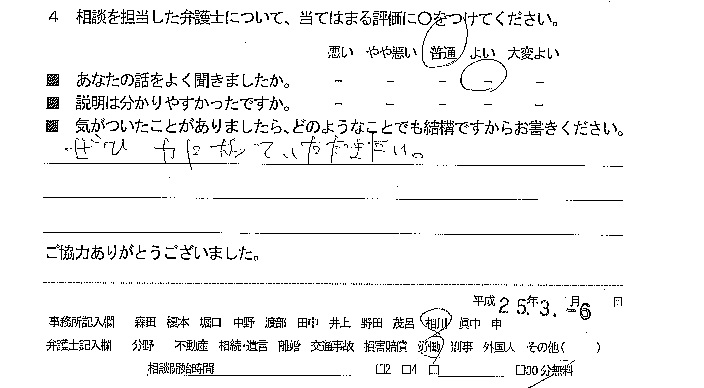 4 相談を担当した弁護士について、当てはまる評価に○をつけてください。
悪い やや悪い 普通 よい 大変よい
あなたの話をよく聞きましたか。 － － － － －
説明は分かりやすかったですか。 － － － － －
気がついたことがありましたら、どのようなことでも結構ですからお書きください。
ぜひ 力に
ご協力ありがとうございました。
平成 25年 3.月 -6 日
事務所記入欄 森田 榎本 堀口 中野 渡部 田中 井上 野田 茂呂 相川 眞中 申
弁護士記入欄 分野 不動産 相続・遺言 離婚 交通事故 損害賠償 労働 刑事 外国人 その他( )
相談開始時間 □2 □4 □ □30分無料